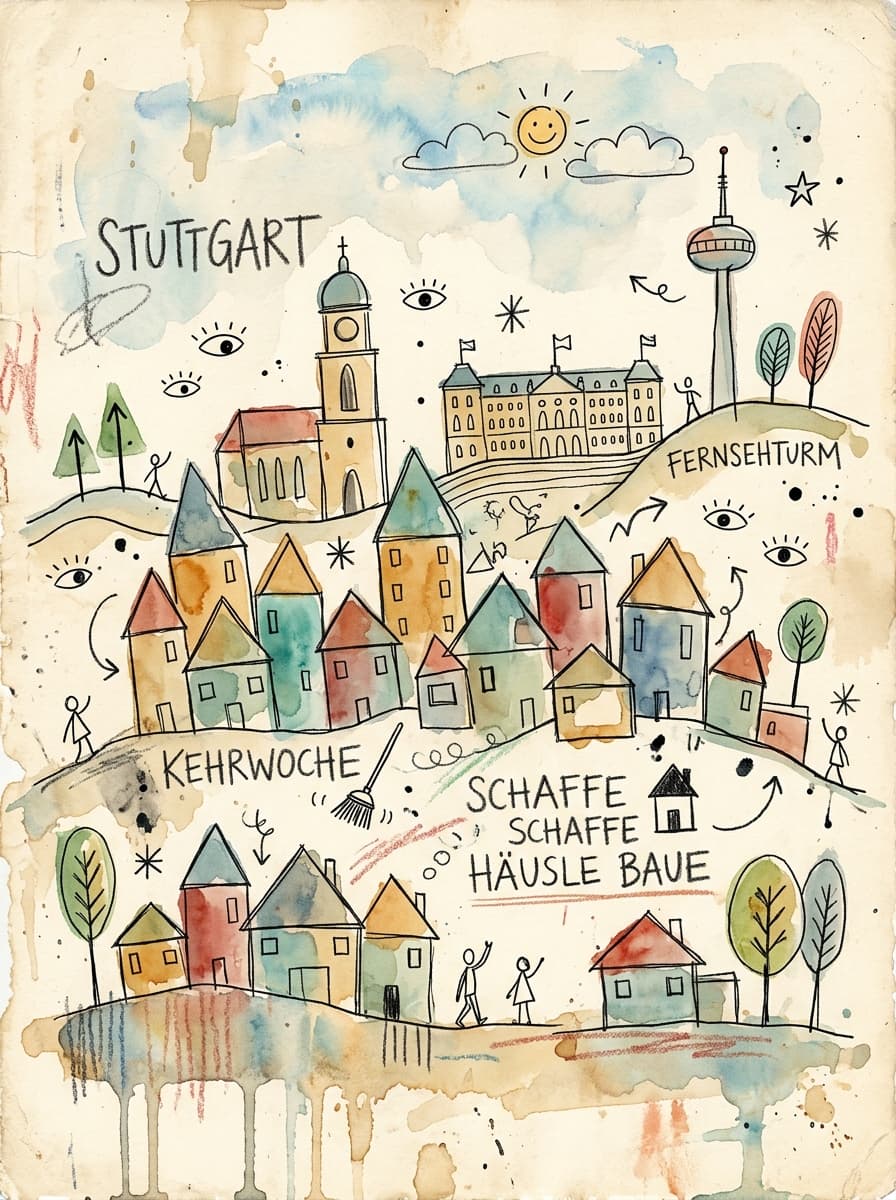 STUTTGART
FERNSEHTURM
KEHRWOCHE
SCHAFFE
SCHAFFE
HÄUSLE BAUE